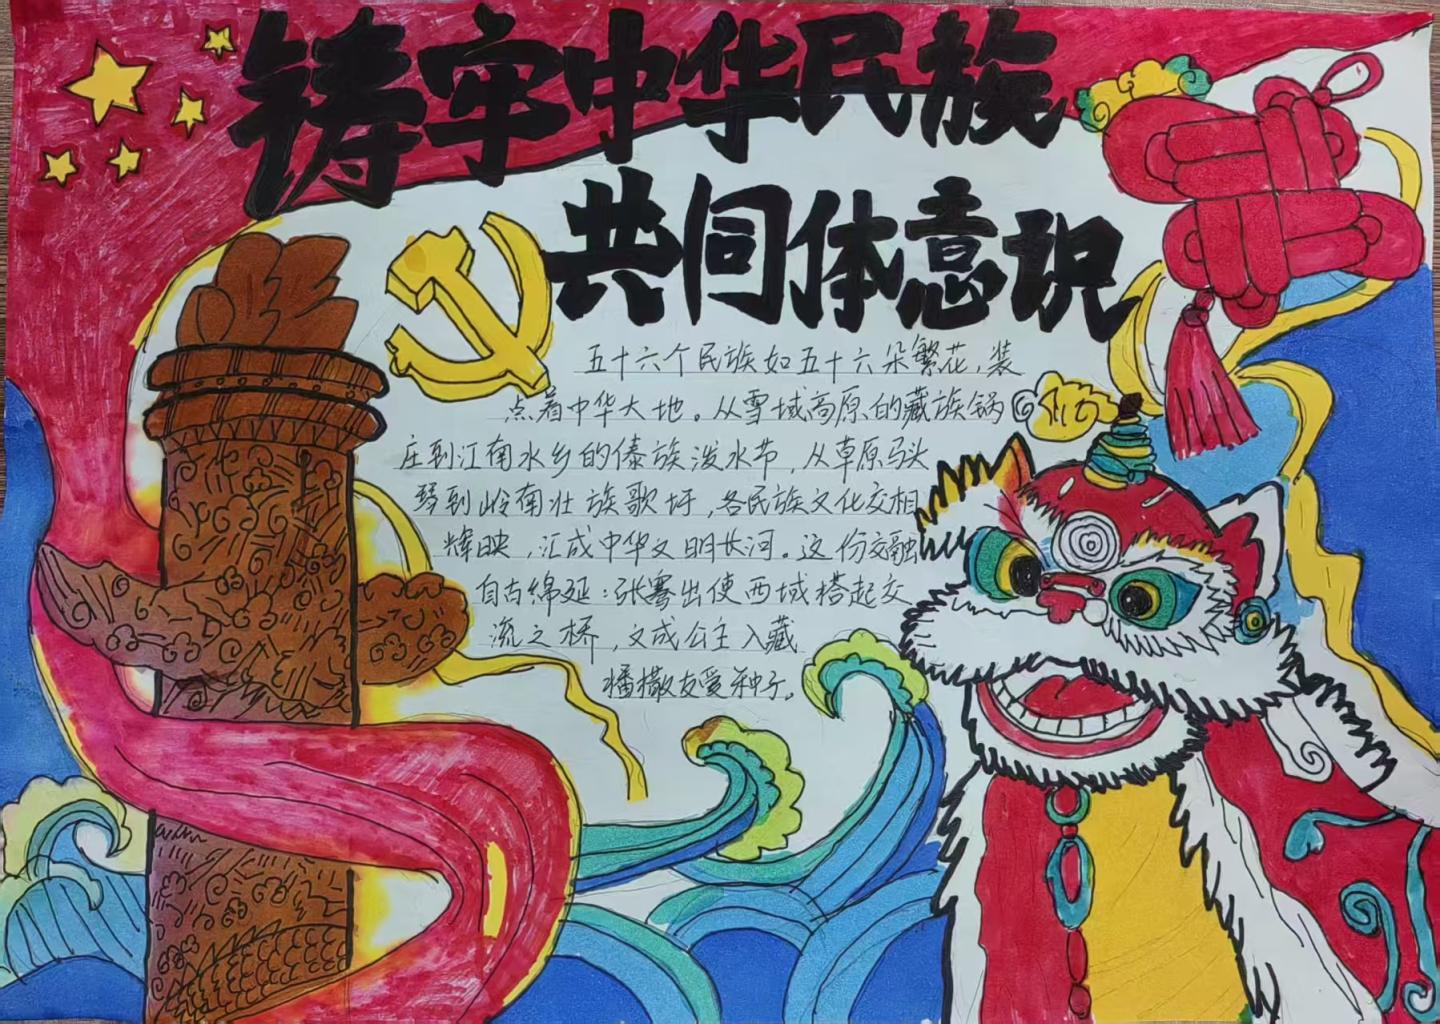 铸牢中华民族
共同体意识
五十六个民族如五十六朵繁花,装
点着中华大地。从雪域高原的藏族锅
庄到江南水乡的傣族泼水节,从草原马头
琴到岭南壮族歌圩,各民族文化交相
辉映,汇成中华文明长河。这份交融
自古绵延:张骞出使西域搭起交
流之桥,文成公主入藏
播撒友爱种子。